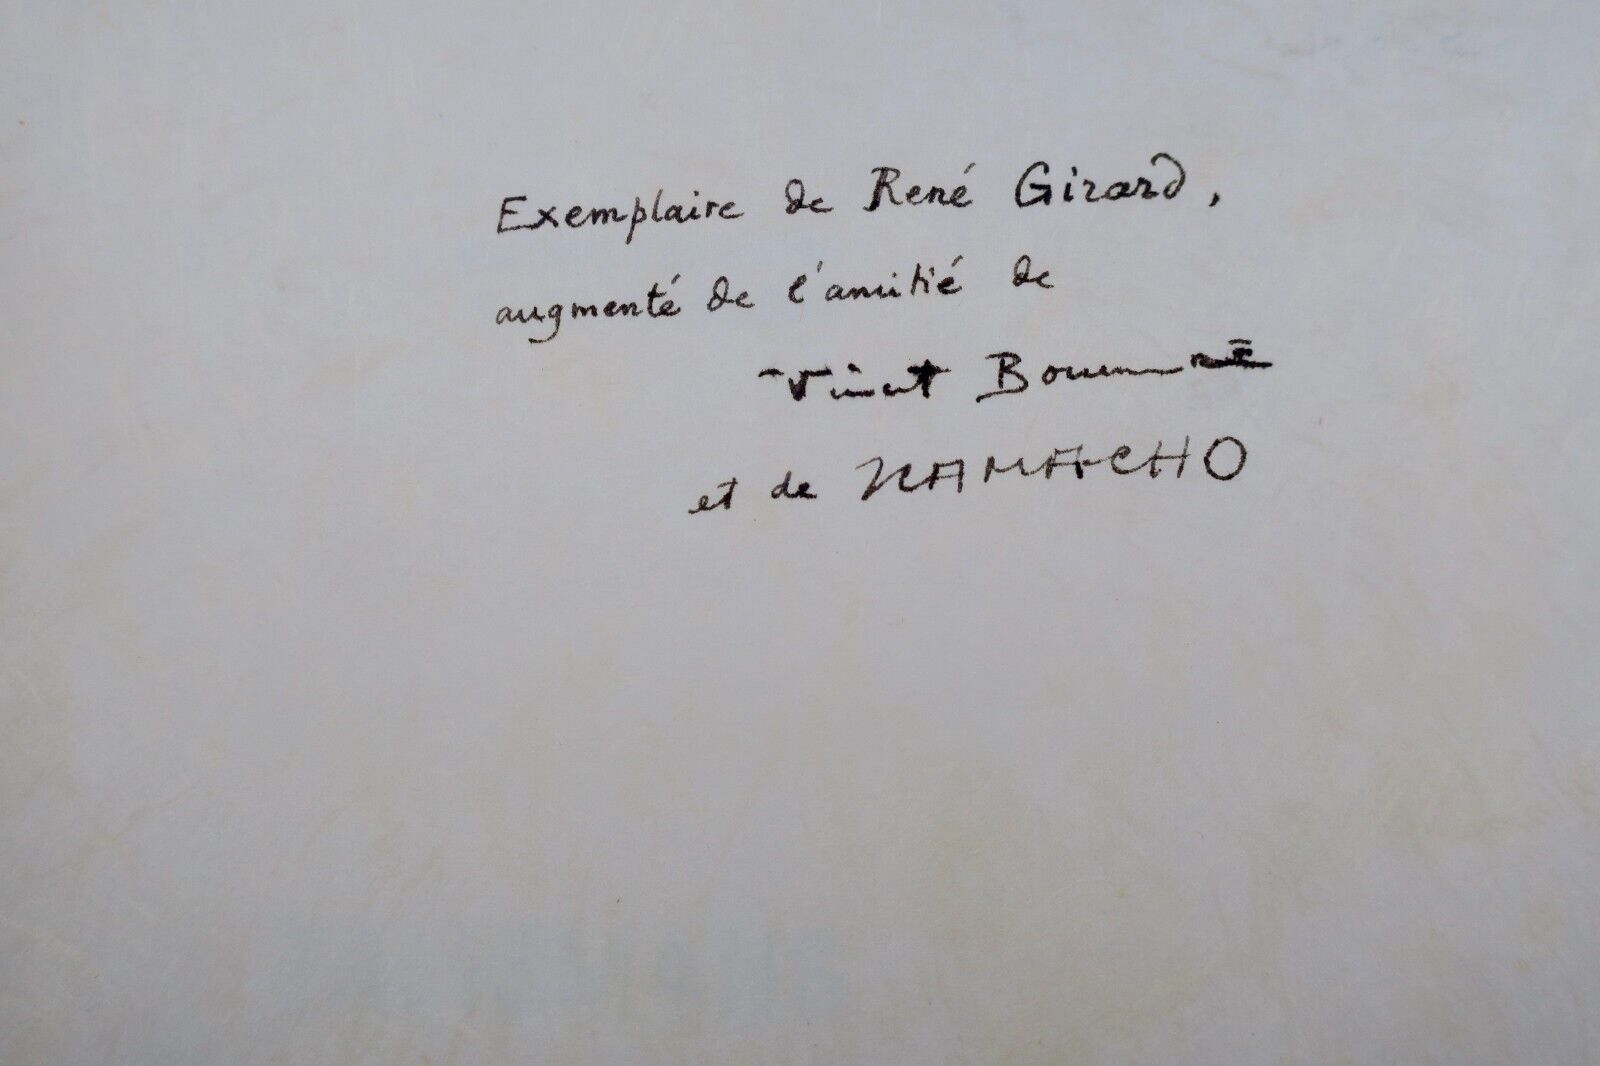 Exemplaire de René Girard,
augmenté de l'amitié de
Vincent
et de KAMACHO